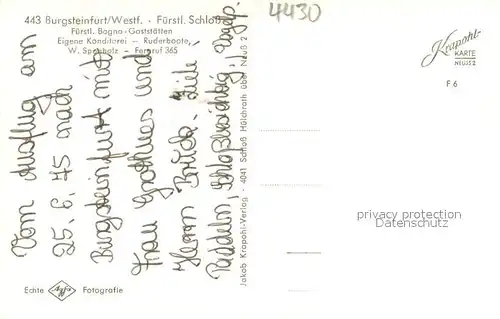 443 Burgsteinfurt/Westf. - Fürstl. Schloß
Fürstl. Bagno-Gaststätten
Eigene Konditorei - Ruderboote,
W. Sp holz - Fernruf 365
4430
Krapohl-
KARTE
NEUSS 2
F 6
Vom Ausflug am
25. 6. 75 nach
Burgsteinfurt mit
Frau Grothues und
Herrn Ziele:
Paddeln, Schloßbesichtig.,
Jakob Krapohl-Verlag - 4041 Schloß Hülchrath über Neuß 2
privacy protection
datenschutz
Echte Agfa Fotografie